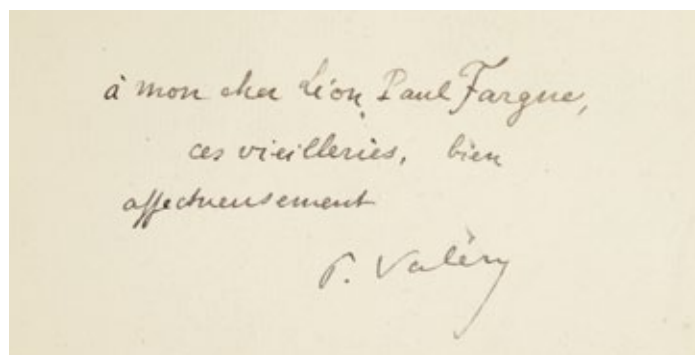 à mon cher Léon Paul Fargue,
ces vieilleries, bien
affectueusement
P. Valéry